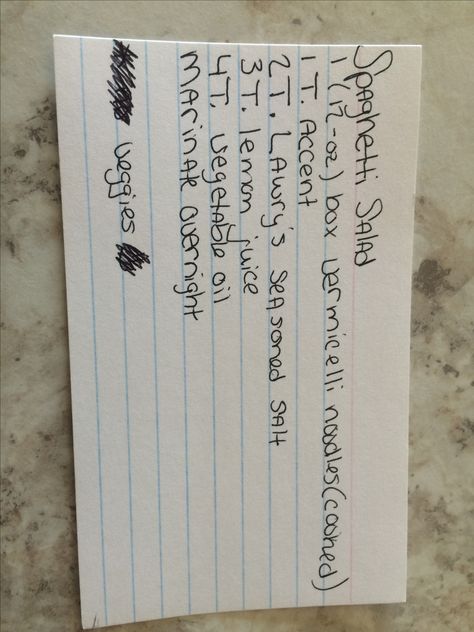 Spaghetti Salad
1 (12-oz) box vermicelli noodles (cooked)
1 T. Accent
2 T. Lawry's seasoned salt
3 T. lemon juice
4 T. vegetable oil
Marinate overnight
veggies